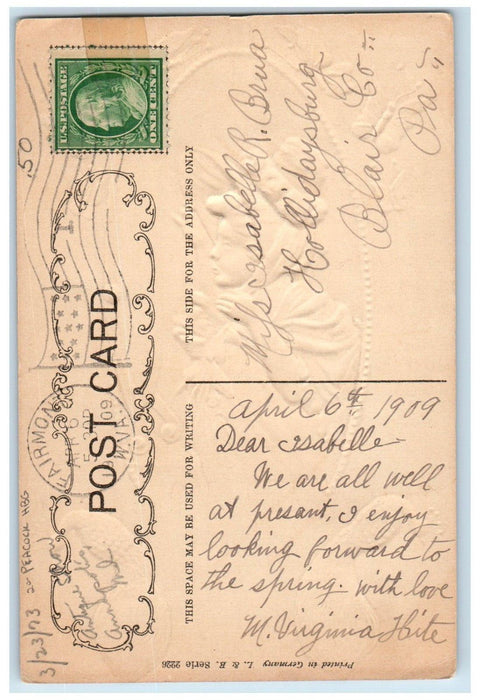 U.S. POSTAGE
ONE CENT
.50
POST CARD
THIS SIDE FOR THE ADDRESS ONLY
Miss Isabelle R. Brua
Hollidaysburg
Blair Co.
Pa
FAIRMONT
APR 6
1909
W.VA.
THIS SPACE MAY BE USED FOR WRITING
April 6th, 1909
Dear Isabelle
We are all well
at presant, I enjoy
looking forward to
the spring. with love
M. Virginia Hite
3/23/73 PEACOCK HBG
Printed in Germany L. & B. Serie 2226